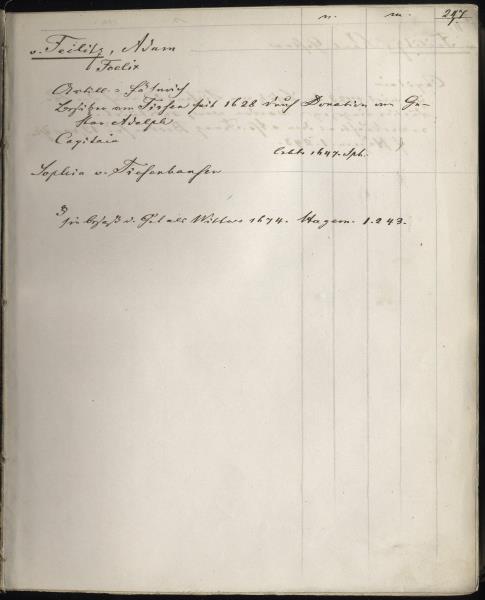 n. m. 297
v. Teilitz, Adam
Foelix
Artill = Fähnrich
Besitzer von Tirsen seit 1628 durch Donation von Gu-
stav Adolph
Capitain
lebte 1647. Sph.
Sophia v. Tiesenhausen
3) sie besaß d. Gut als Wittwe 1674. Hagem. 1.243.